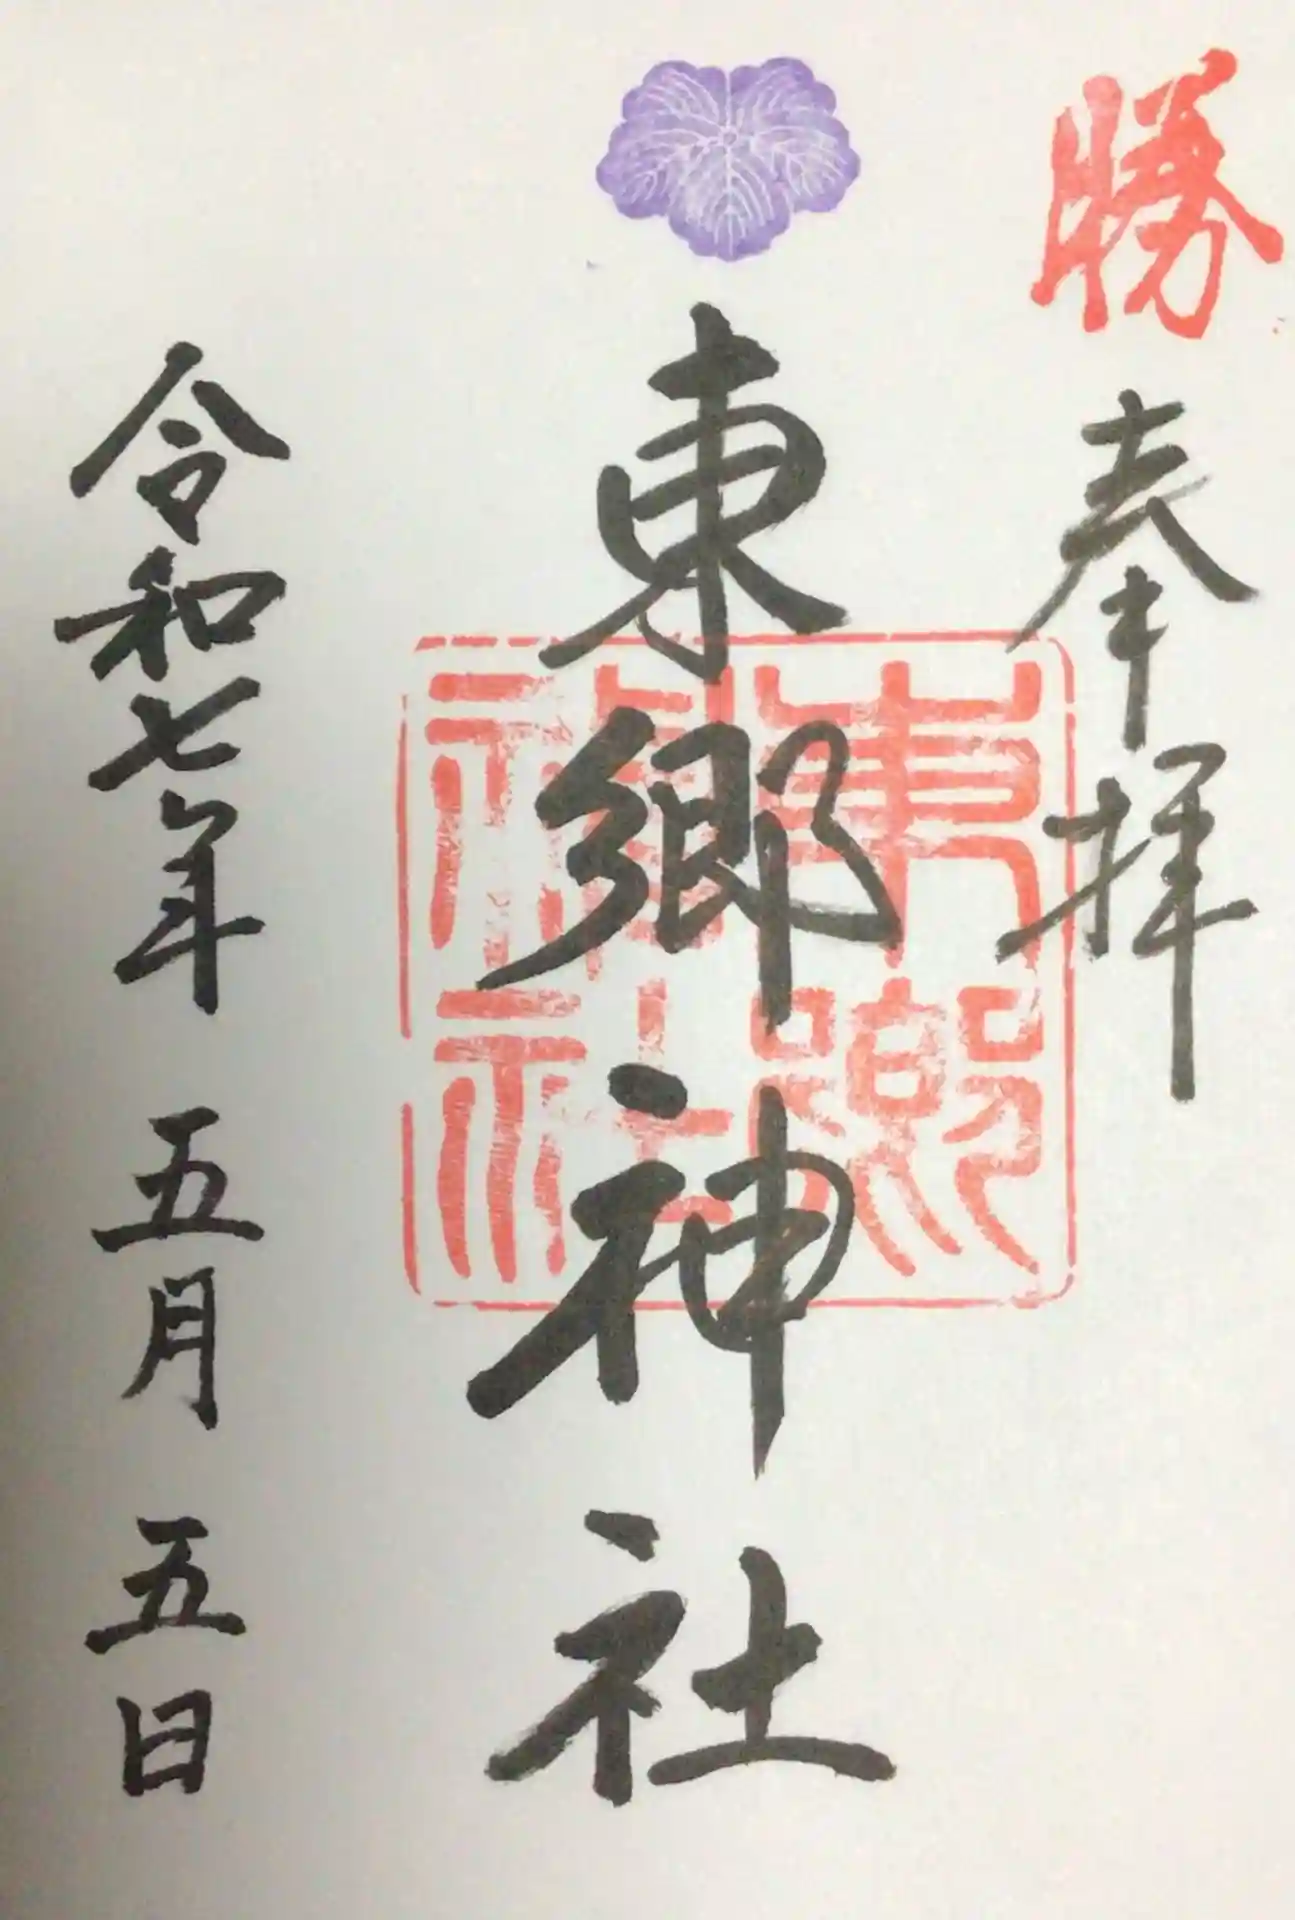 勝
奉拝
東郷神社
東郷
神社
令和七年 五月 五日